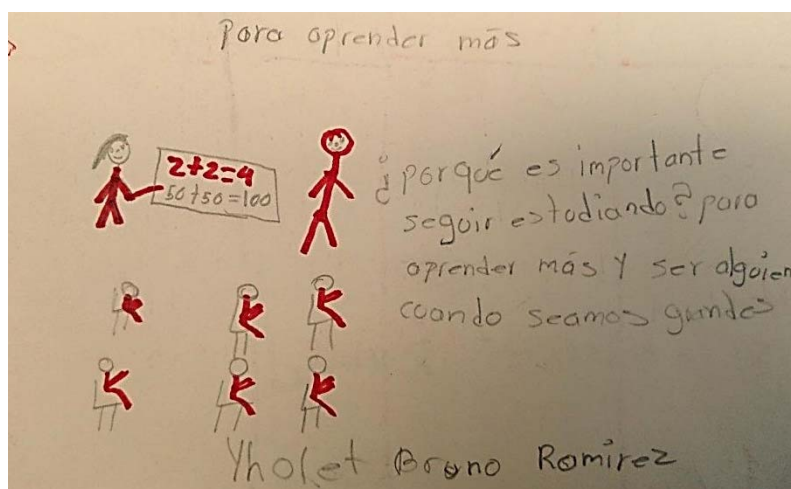 para aprender más
2+2=4
50+50=100
¿porqué es importante
seguir estudiando? para
aprender más y ser alguien
cuando seamos grandes
Yholet Bruno Romirez